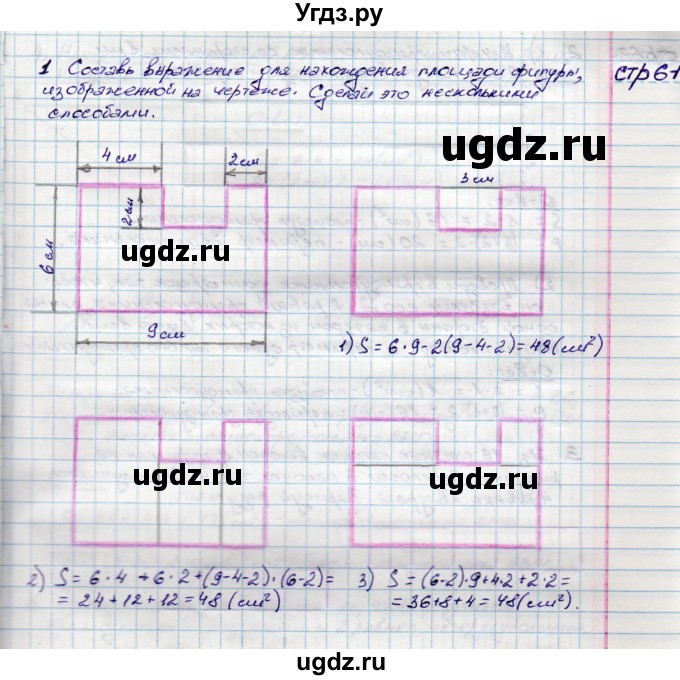 Угдз.ру
1 Составь выражение для нахождения площади фигуры, стр 61
изображенной на чертеже. Сделай это несколькими
способами.
ugdz.ru
4 см
2 см
3 см
2 см
6 см
ugdz.ru
ugdz.ru
9 см
1) S = 6·9-2(9-4-2)=48(см²)
ugdz.ru
ugdz.ru
2) S = 6·4 +6·2+(9-4-2)·(6-2)=
= 24+12+12=48 (см²)
3) S = (6-2)·9+4·2+2·2=
=36+8+4=48(см²).
ugdz.ru
ugdz.ru